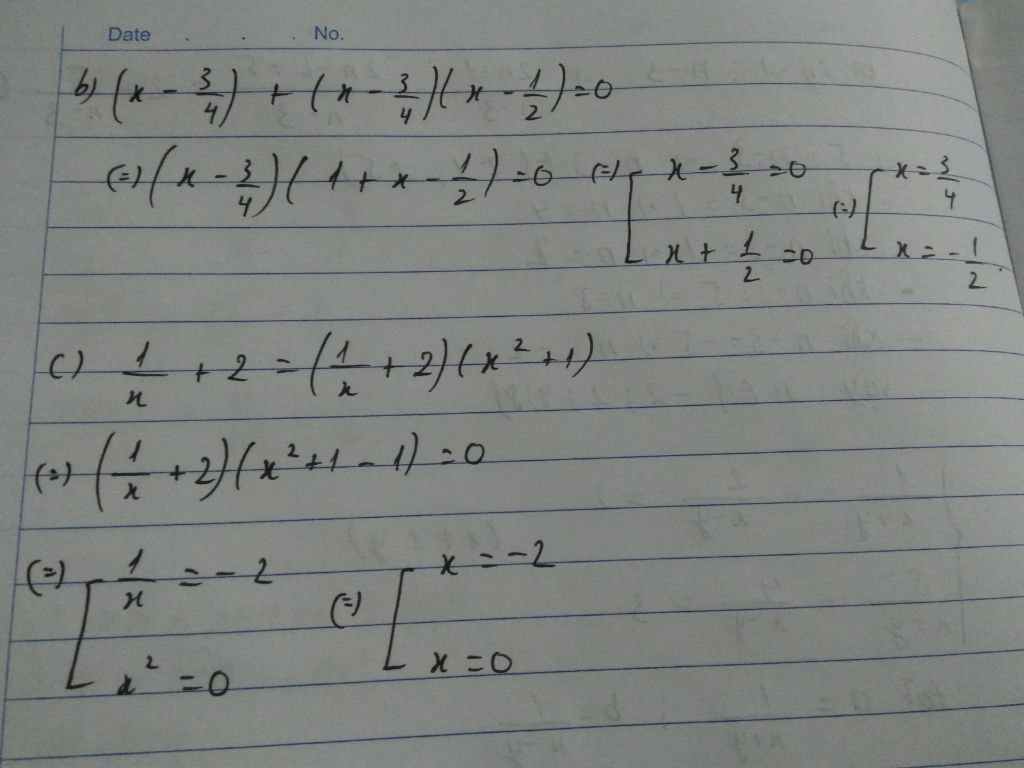 Date . . . No.
b) (x - 3/4) + (x - 3/4)(x - 1/2) = 0
(=) (x - 3/4)(1 + x - 1/2) = 0 (=) [ x - 3/4 = 0 (=) [ x = 3/4
x + 1/2 = 0 x = - 1/2
c) 1/x + 2 = (1/x + 2)(x² + 1)
(=) (1/x + 2)(x² + 1 - 1) = 0
(=) [ 1/x = - 2 (=) [ x = - 2
x² = 0 x = 0